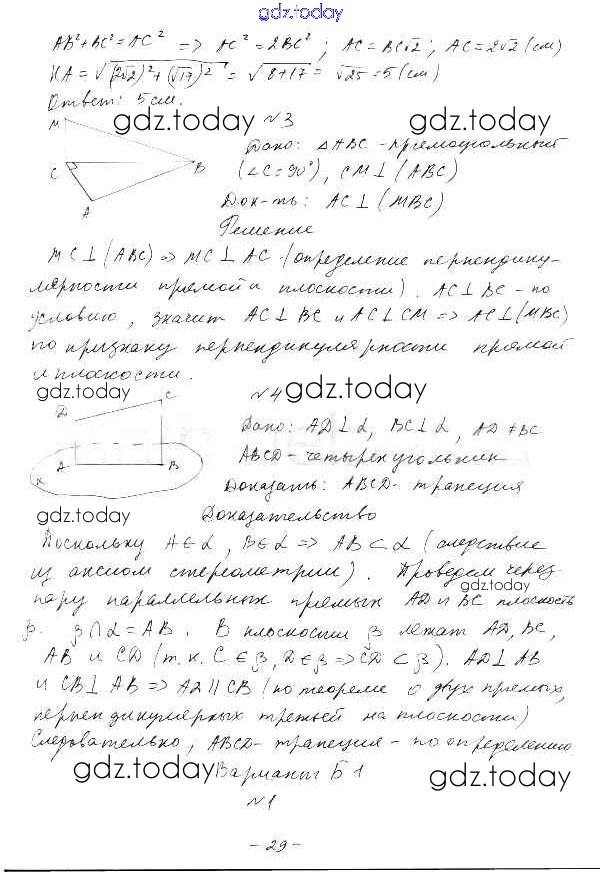 gdz.today
AB²+BC²=AC² => AC²=2BC²; AC=BC√2; AC=2√2 (см)
KA=√((2√2)²+(√17)²)=√(8+17)=√25=5(см)
Ответ: 5 см.
gdz.today gdz.today
M
C
B
A
№3
Дано: △ABC - прямоугольный
(∠C=90°), CM⊥(ABC)
Док-ть: AC⊥(MBC)
Решение
MC⊥(ABC) => MC⊥AC (определение перпендику-
лярности прямой и плоскости). AC⊥BC - по
условию, значит AC⊥BC и AC⊥CM => AC⊥(MBC)
по признаку перпендикулярности прямой
и плоскости.
gdz.today
№4 gdz.today
D
C
A
B
α
Дано: AD⊥α, BC⊥α, AD≠BC
ABCD - четырехугольник
Доказать: ABCD - трапеция
gdz.today
Доказательство
Поскольку A∈α, B∈α => AB⊂α (следствие
из аксиом стереометрии). Проведем через
gdz.today
пару параллельных прямых AD и BC плоскость
β. β∩α=AB. В плоскости β лежат AD, BC,
AB и CD (т.к. C∈β, D∈β => CD⊂β). AD⊥AB
и CB⊥AB => AD||CB (по теореме о двух прямых,
перпендикулярных третьей на плоскости)
Следовательно, ABCD - трапеция - по определению
gdz.today Вариант Б1 gdz.today
№1
- 29 -